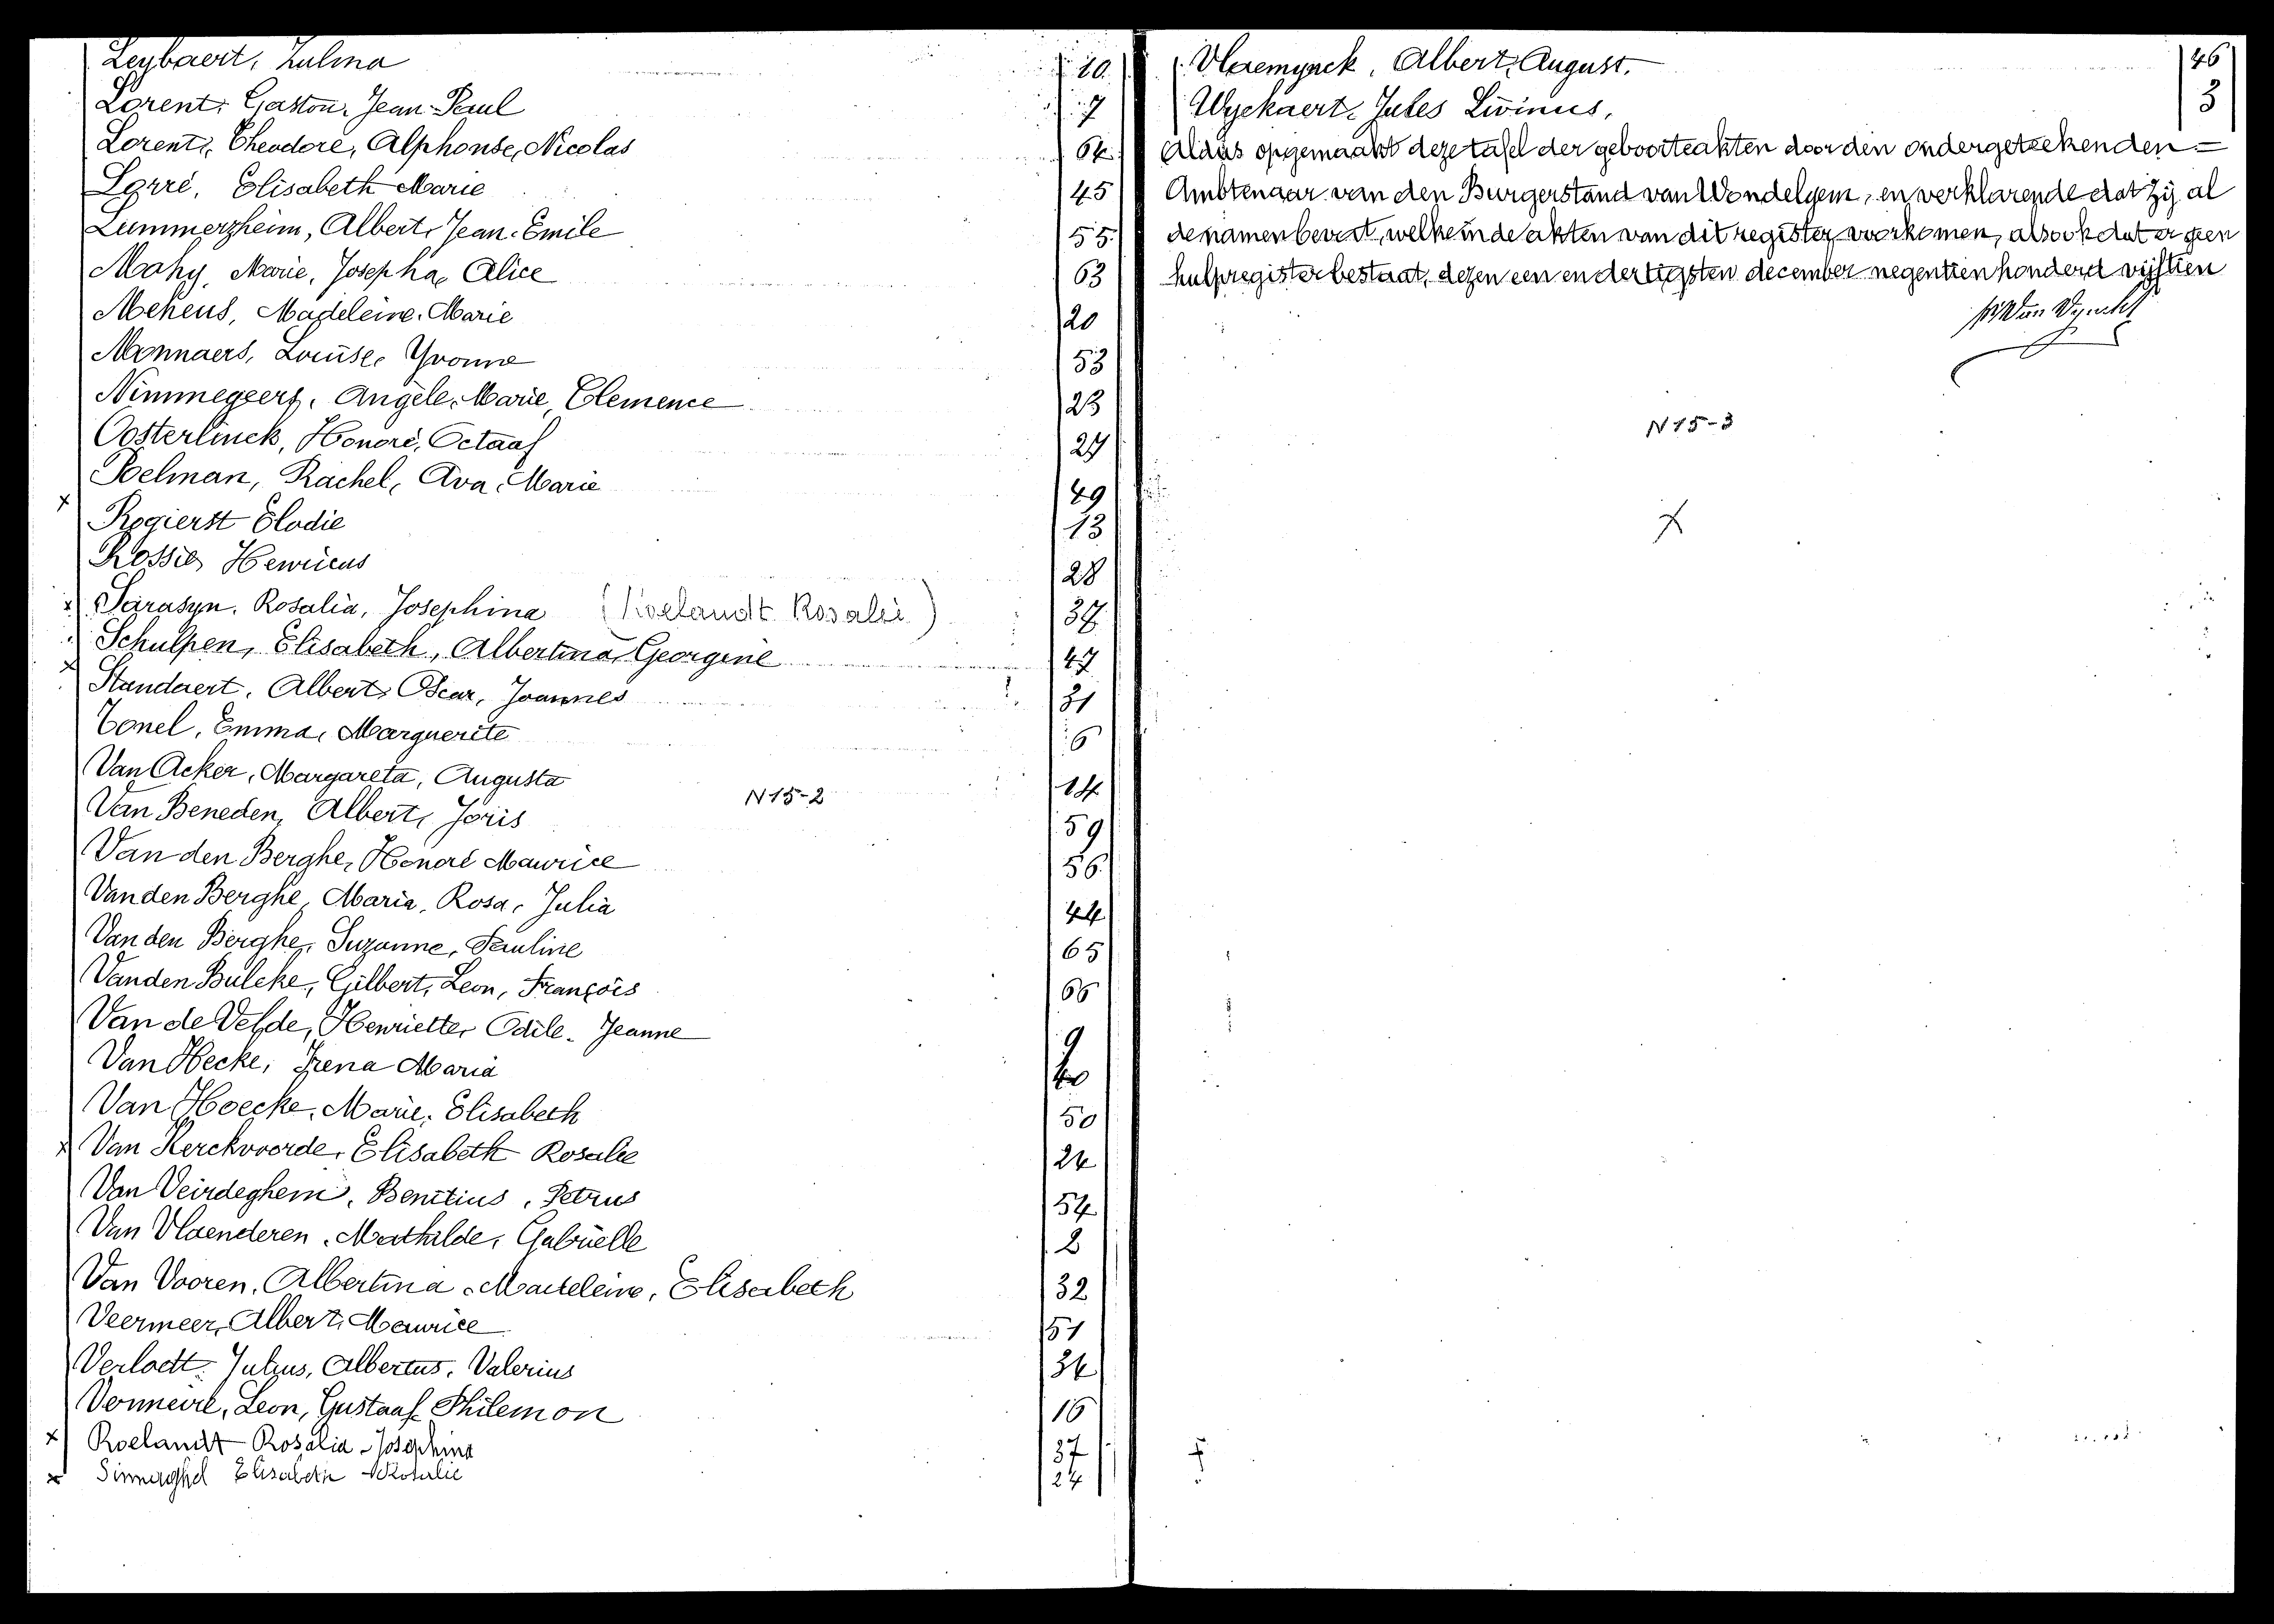 Leybaert, Zulma 10
Lorent, Gaston, Jean-Paul 7
Lorent, Theodore, Alphonse, Nicolas 64
Lorré, Elisabeth Marie 45
Lummerzheim, Albert, Jean-Emile 55
Mahy, Marie, Josepha, Alice 63
Meheus, Madeleine, Marie 20
Monnaers, Louise, Yvonne 53
Nimmegeers, Angèle, Marie, Clemence 23
Oosterlinck, Honoré, Octaaf 27
Poelman, Rachel, Ava, Marie 49
x
Rogierst Elodie 13
Rossie, Henricus 28
x Sarasyn, Rosalia, Josephina (Roelandt Rosalie) 37
Schulpen, Elisabeth, Albertina, Georgine 47
x Standaert, Albert, Oscar, Joannes 31
Tonel, Emma, Marguerite 6
Van Acker, Margareta, Augusta 14
N15-2
Van Beneden, Albert, Joris 59
Van den Berghe, Honoré Maurice 56
Van den Berghe, Maria, Rosa, Julia 44
Van den Berghe, Suzanne, Pauline 65
Vanden Bulcke, Gilbert, Leon, François 66
Van de Velde, Henriette, Odile, Jeanne 9
Van Hecke, Irena Maria 40
Van Hoecke, Marie, Elisabeth 50
x Van Kerckvoorde, Elisabeth Rosalie 24
Van Veirdeghem, Benitius, Petrus 54
Van Vlaenderen, Mathilde, Gabrielle 2
Van Vooren, Albertina, Madeleine, Elisabeth 32
Veermeer, Albert, Maurice 51
Verloett, Julius, Albertus, Valerius 34
Vermeire, Leon, Gustaaf Philemon 16
x Roelandt Rosalia-Josephina 37
x Elisabeth Rosalie 24
Vlaemynck, Albert, August. 46
Wyckaert, Jules Livinus, 3
Aldus opgemaakt deze tafel der geboorteakten door den ondergeteekenden =
Ambtenaar van den Burgerstand van Wondelgem, en verklarende dat zij al
de namen bevat, welke in de akten van dit register voorkomen, alsook dat er geen
hulpregister bestaat, dezen een en dertigsten december negentien honderd vijftien
N15-3
x